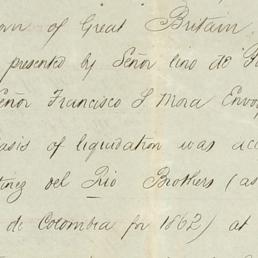 own of Great Britain
presented by Señor lino de
Señor Francisco S Mora Envoy
basis of liquidation was acc
tinez del Rio Brothers (as
de Colombia for 1862) at